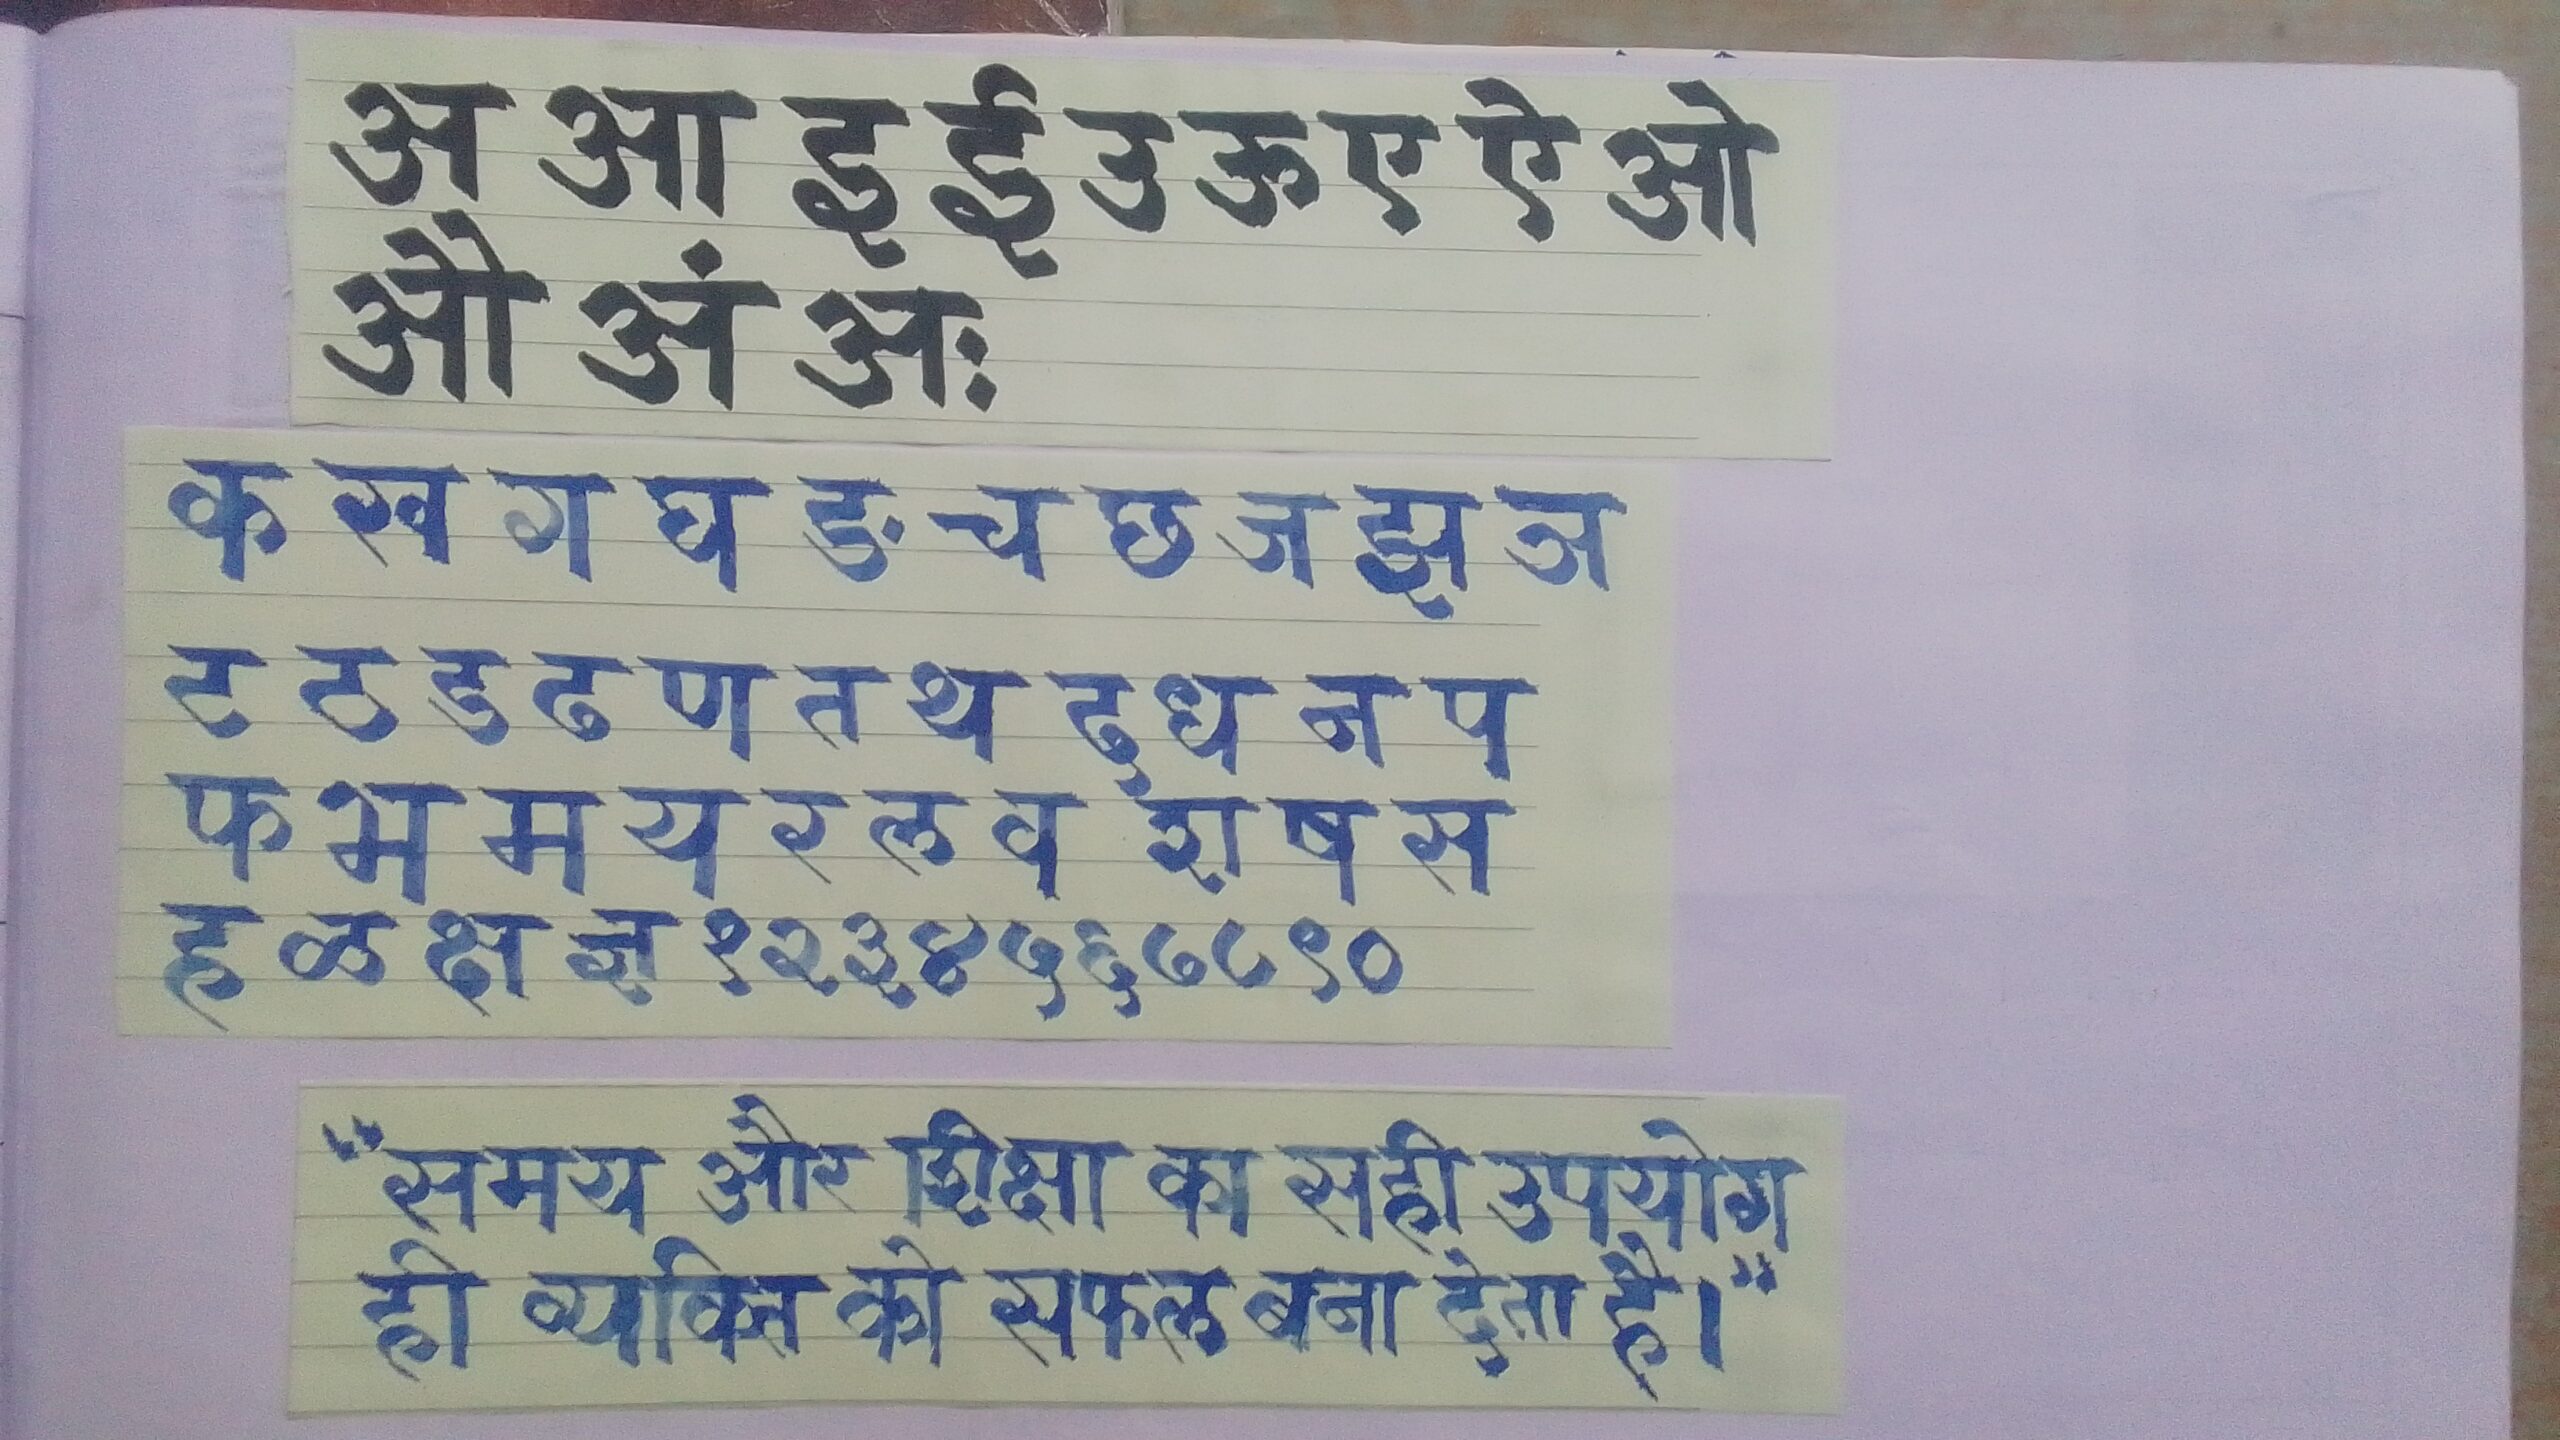 अ आ इ ई उ ऊ ए ऐ ओ
औ अं अः
क ख ग घ ङ च छ ज झ ञ
ट ठ ड ढ ण त थ द ध न प
फ भ म य र ल व श ष स
ह ळ क्ष ज्ञ १२३४५६७८९०
“समय और शिक्षा का सही उपयोग
ही व्यक्ति को सफल बना देता है।”